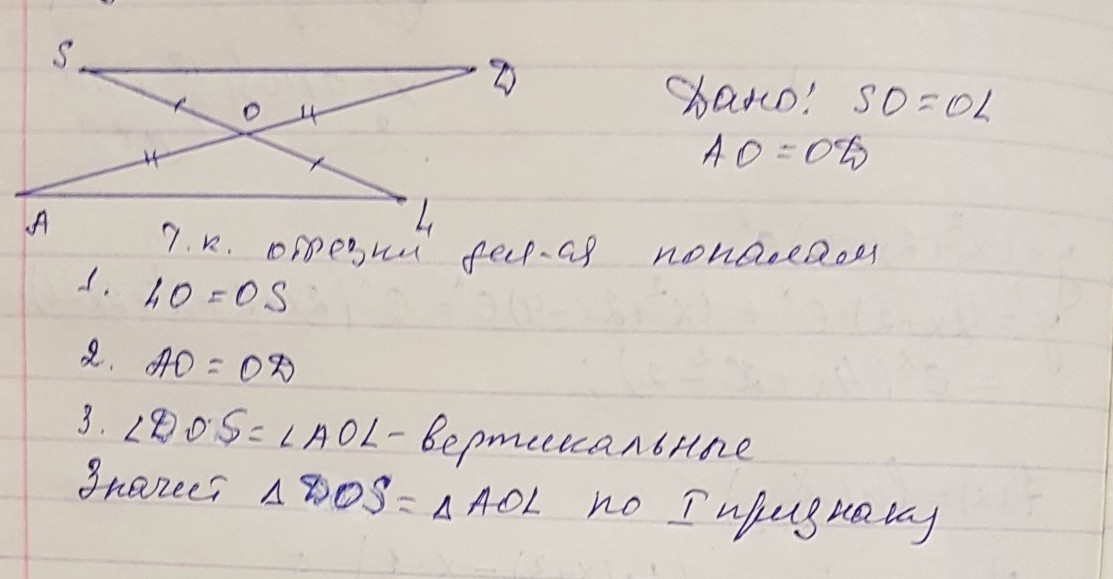 S
D
O
A
L
Дано: SO = OL
AO = OD
Т.к. отрезки дел-ся пополам
1. LO = OS
2. AO = OD
3. ∠DOS = ∠AOL - вертикальные
Значит △DOS = △AOL по I признаку